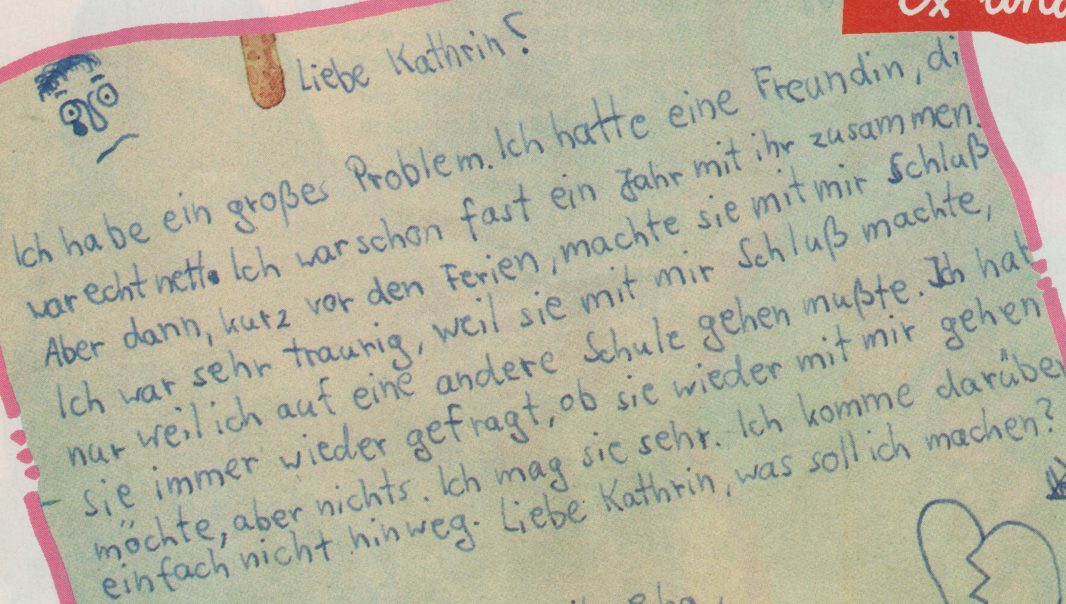 Liebe Kathrin!
Ich habe ein großes Problem. Ich hatte eine Freundin, di
war echt nett. Ich war schon fast ein Jahr mit ihr zusammen.
Aber dann, kurz vor den Ferien, machte sie mit mir Schluß
Ich war sehr traurig, weil sie mit mir Schluß machte,
nur weil ich auf eine andere Schule gehen mußte. Ich hat
sie immer wieder gefragt, ob sie wieder mit mir gehen
möchte, aber nichts. Ich mag sie sehr. Ich komme darüber
einfach nicht hinweg. Liebe Kathrin, was soll ich machen?